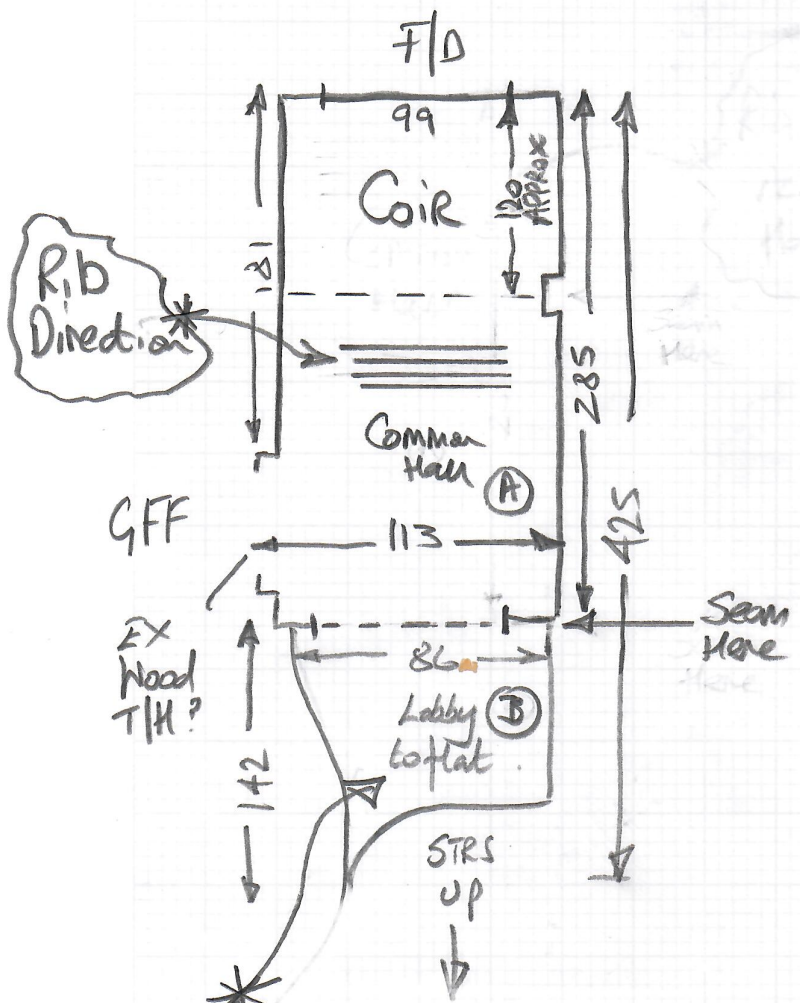 F/D
99
Coir
120
APPROX
181
Rib
Direction
285
Common
Hall
A
GFF
113
425
Seam
Here
EX
Wood
T/H?
86
Lobby
to flat
B
142
STRS
UP